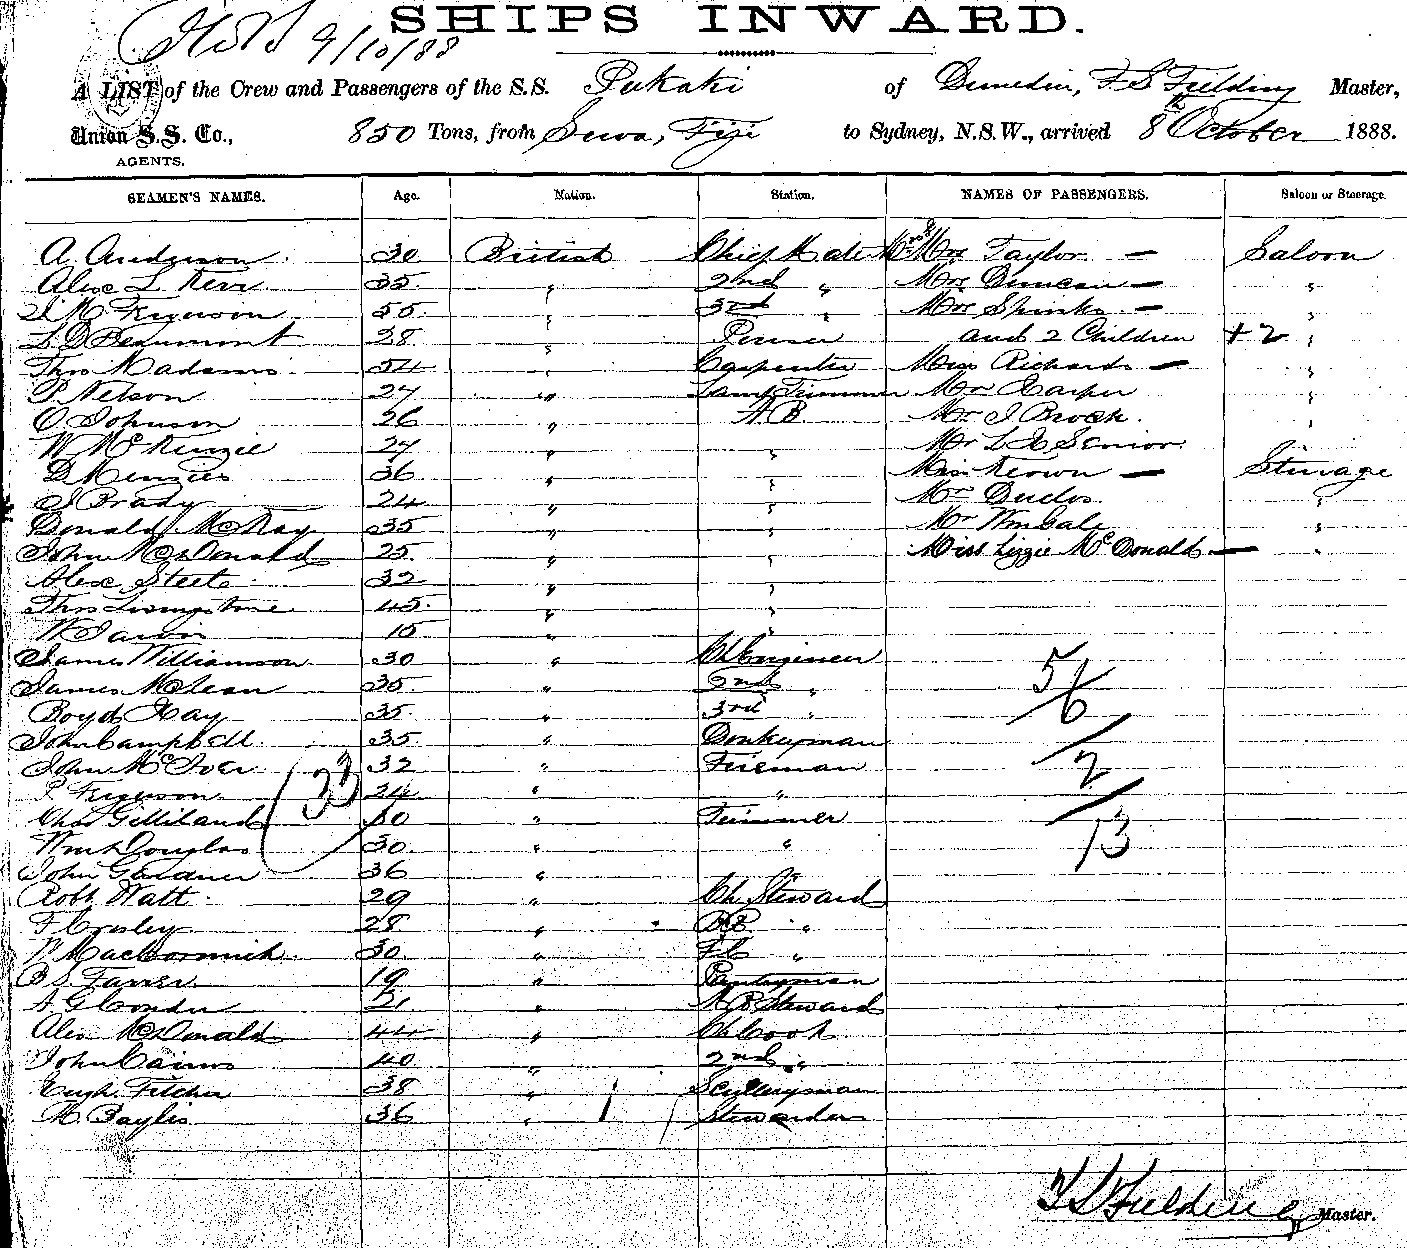 SHIPS INWARD.
9/10/88
A LIST of the Crew and Passengers of the S.S. Pukaki of Dunedin, F S Fielding Master,
Union S.S. Co., 850 Tons, from Suva, Fiji to Sydney, N.S.W., arrived 8th October 1888.
AGENTS.
SEAMEN'S NAMES. Age. Nation. Station. NAMES OF PASSENGERS. Saloon or Steerage.
A. Anderson 30 British Chief Mate Mr & Mrs Taylor — Saloon
Alex L Kerr 35 " 2nd " Mrs Duncan — "
M Ferguson 55 " 3rd " Mrs Spinks — "
L D Beaumont 28 " Purser and 2 Children + 2 "
Thos Madams 54 " Carpenter Miss Richards — "
P. Nelson 27 " Lamp Trimmer Mr Harper "
O Johnson 26 " A B Mr J Brock "
W McKenzie 27 " " Mr L Senior
D Menzies 36 " " Miss Keown — Steerage
J Brady 24 " " Mr Duclos "
Donald McKay 35 " " Mr Wm Gale "
John McDonald 25 " " Miss Lizzie McDonald — "
Alex Steele 32 " "
Thos Livingstone 45 " "
W Jarvis 15 " "
James Williamson 30 " Ch Engineer
James McLean 35 " 2nd "
Boyd Hay 35 " 3rd "
John Campbell 35 " Donkeyman
John McIver 32 " Fireman
P Ferguson 24 " "
Chas Gilliland 30 " Trimmer
Wm Douglas 30 " "
John Gardner 36 "
Robt Watt 29 " Ch Steward
F Crosley 28 " "
W MacCormick 30 " F C "
B S. Farrer 19 " Pantryman
A G Conder 21 " Steward
Alex McDonald 44 " Ch Cook
John Cairns 40 " 2nd "
Hugh Fletcher 38 " Sculleryman
M Baylis 36 " Stewardess
33
5/6
2
13
F S Fielding Master.